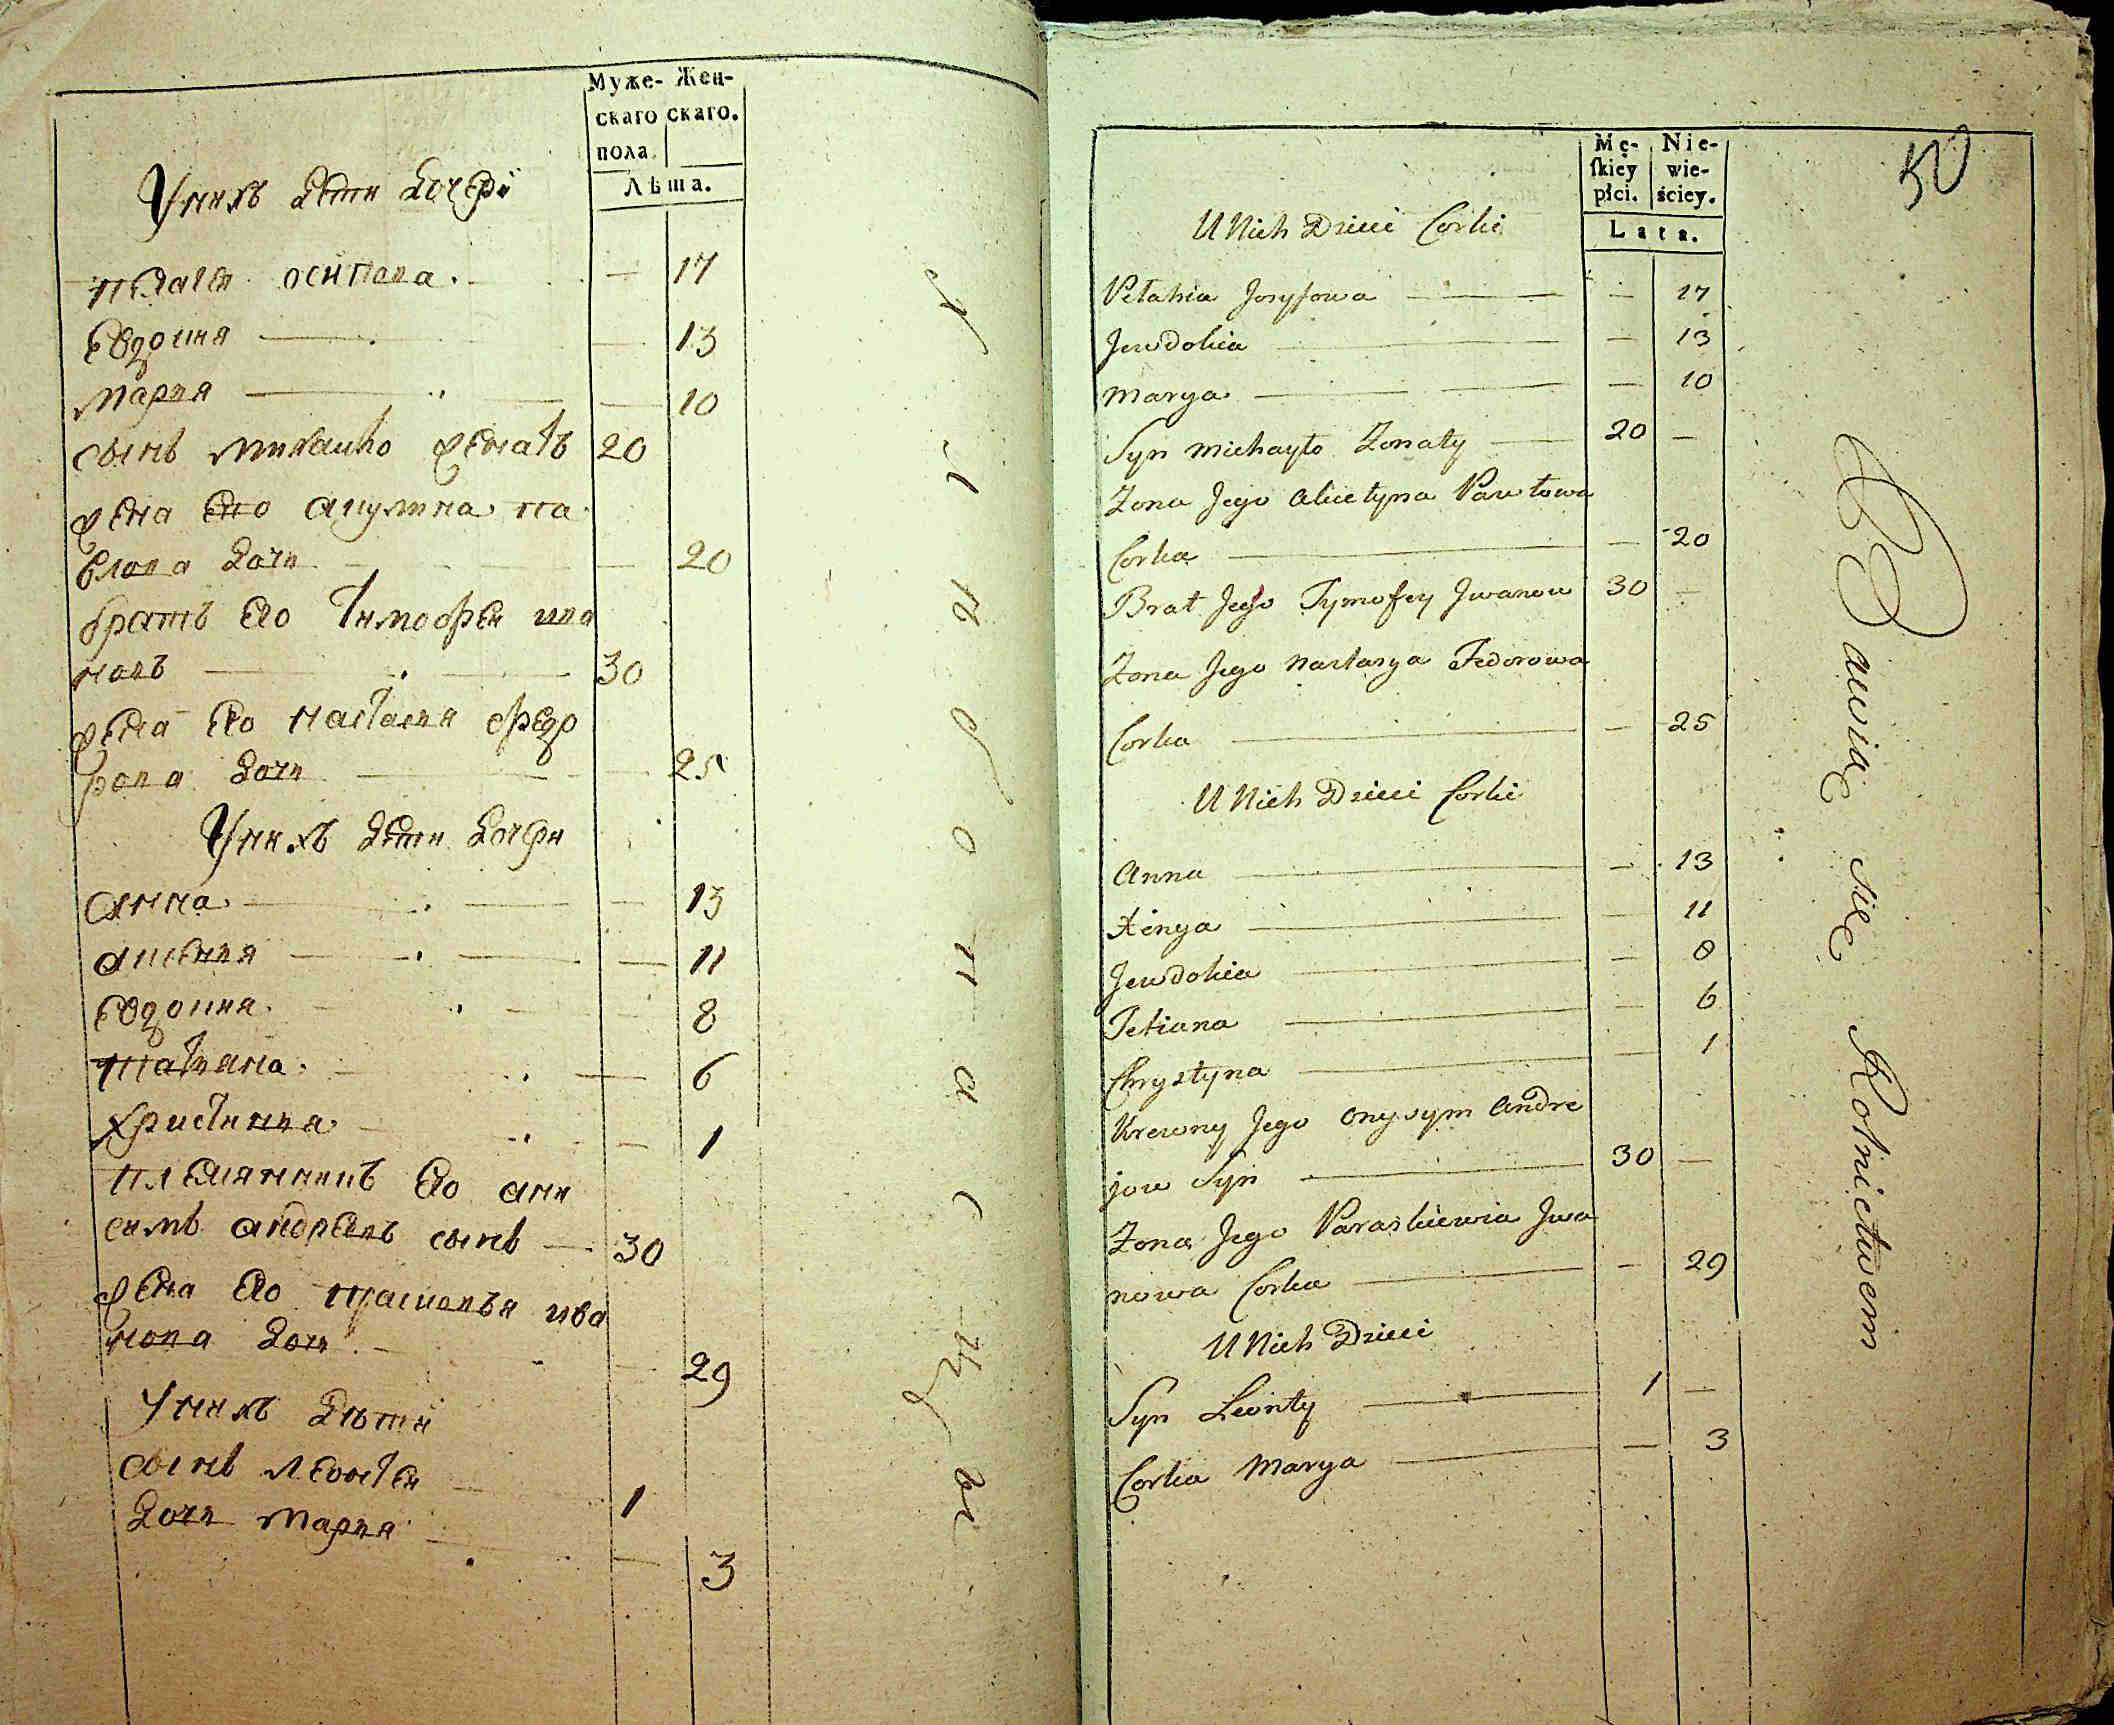 Муже- Жен-
скаго скаго.
пола.
Лѣта.
Унихъ дети дочери
пелагея осипова — 17
Евдокия — 13
Мария — 10
сынъ михаило женатъ 20
жена его акулина па
влова дочь — 20
братъ его Тимофеи ива
новъ 30
жена его настасия федо
рова дочь — 25
Унихъ дети дочери
анна — 13
аксения — 11
Евдокия — 8
татияна — 6
христина — 1
племянникъ его ани
симъ андреевъ сынъ — 30
жена его прасковья ива
нова дочь 29
Унихъ дѣти
сынъ леонтеи 1
дочь мария — 3
Mę- Nie-
skiey wie-
płci. ściey.
Lata.
50
U Nich Dzieci Corki
Pełahia Jozyfowa — 17
Jewdokia — 13
Marya — 10
Syn Michayło Zonaty 20 —
Zona Jego Akulyna Pawłowa
Corka — 20
Brat Jego Tymofey Jwanow 30 —
Zona Jego Nastasya Fedorowa
Corka — 25
U Nich Dzieci Corki
Anna — 13
Xenya — 11
Jewdokia — 8
Tetiana — 6
Chrystyna — 1
Krewny Jego Onysym Andre
jow Syn 30 —
Zona Jego Paraskiewia Jwa
nowa Corka — 29
U Nich Dzieci
Syn Leonty 1 —
Corka Marya — 3
Bawią się Rolnictwem